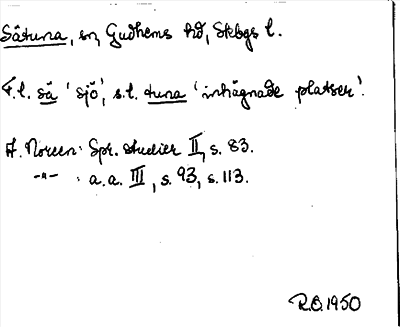 Såtuna, sn, Gudhems hd, Skbgs l.
F.l. så 'sjö', s.l. tuna 'inhägnade platser'.
A. Noreen: Spr. studier II, s. 83.
-"- : a.a. III, s. 93, s. 113.
R.O. 1950